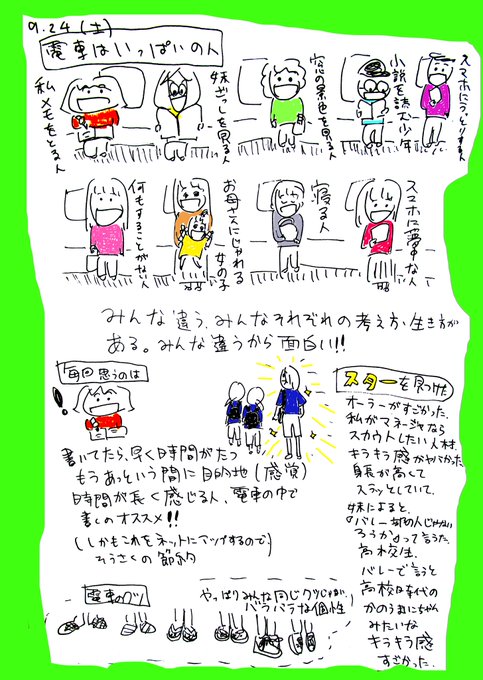 9.24(土)
電車はいっぱいの人
私メモをとる人
妹ざっしを見る人
窓の景色を見る人
小説を読む少年
スマホにうっとりする人
何もすることがない人
お母さんにじゃれる女の子
寝る人
スマホに夢中な人
みんな違う、みんなそれぞれの考え方、生き方が
ある。みんな違うから面白い!!
毎回思うのは
書いてたら、早く時間がたつ
もうあっという間に目的地(感覚)
時間が長く感じる人、電車の中で
書くのオススメ!!
(しかもこれをネットにアップするので)
そうさくの節約
スターを見つけた
オーラーがすごかった。
私がマネージャなら
スカウトしたい人材。
キラキラ感がヤバかった
身長が高くて
スラッとしていて、
妹によると、
高校生。
バレーで言うと
高校時代の
かのうまいちゃん
みたいな
キラキラ感
すごかった。
電車のクツ
やっぱりみんな同じクツじゃない
バラバラな個性